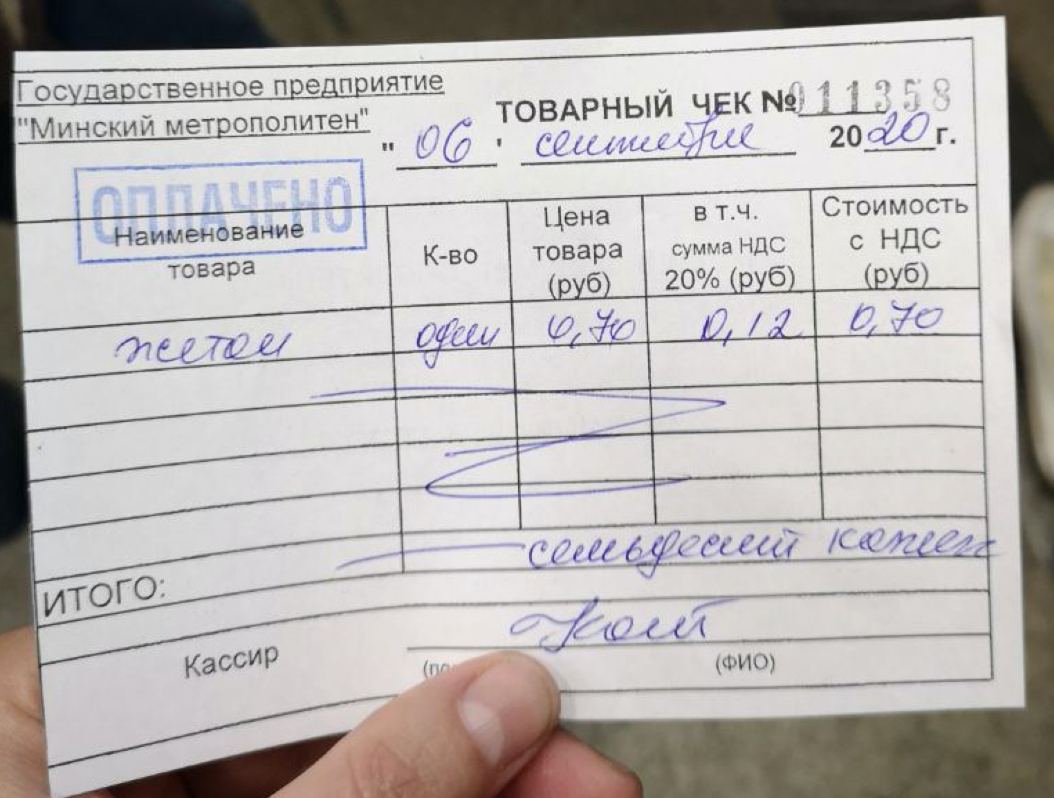 Государственное предприятие
"Минский метрополитен"
ТОВАРНЫЙ ЧЕК № 011358
"06" сентября 2020 г.
ОПЛАЧЕНО
Наименование товара К-во Цена товара (руб) в т.ч. сумма НДС 20% (руб) Стоимость с НДС (руб)
жетон один 0,70 0,12 0,70
семьдесят копеек
ИТОГО:
Кассир
(ФИО)